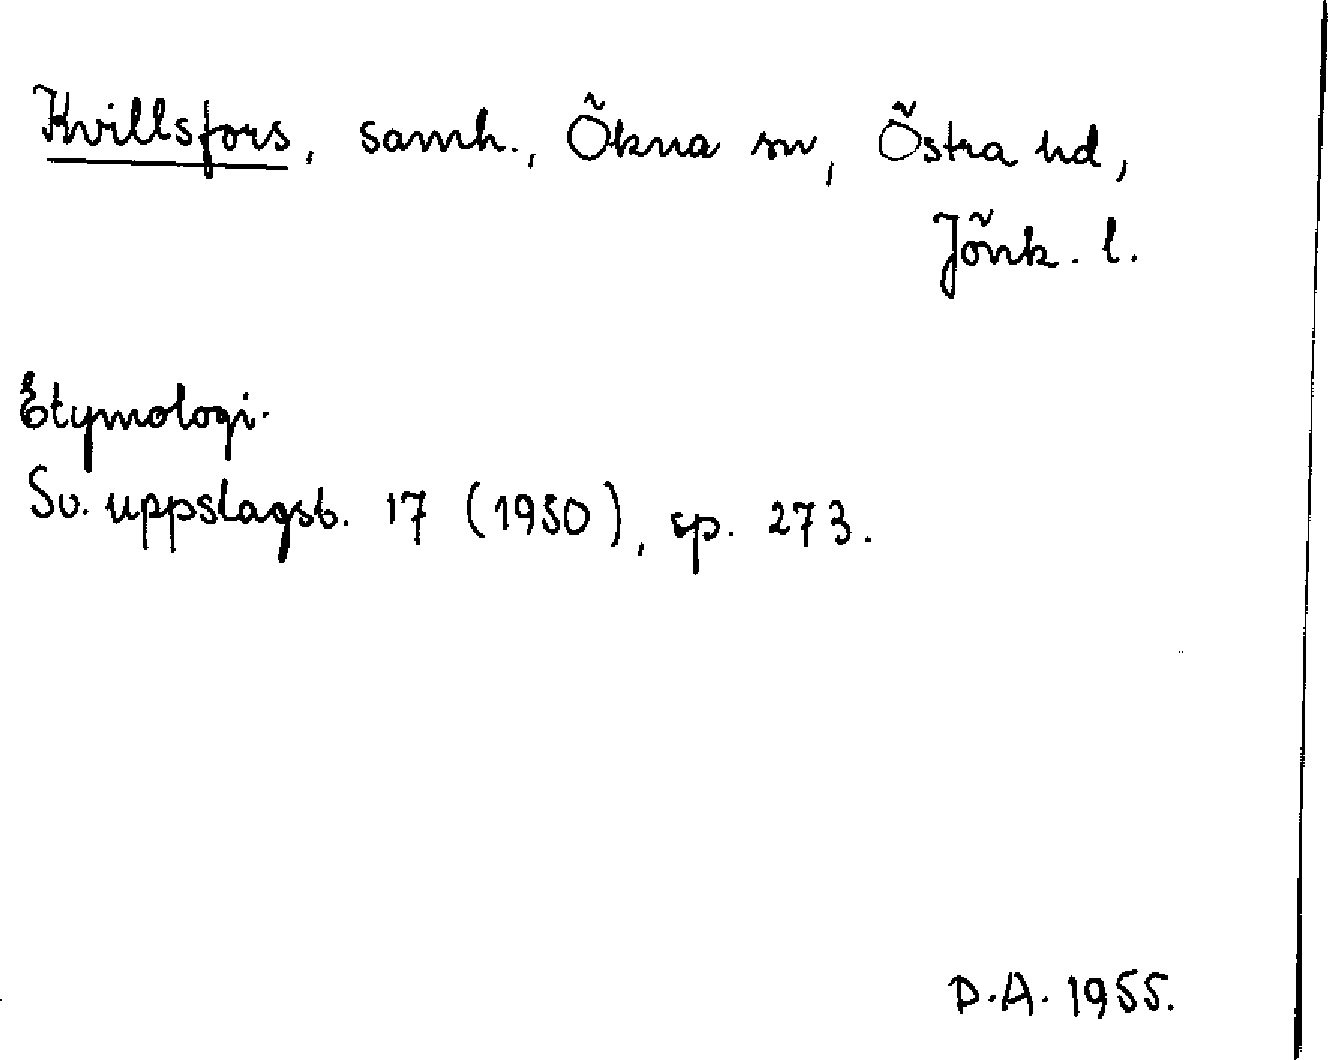 Kvillsfors, samh., Ökna sn, Östra hd,
Jönk. l.
Etymologi.
Sv. uppslagsb. 17 (1950), sp. 273.
D.A. 1955.